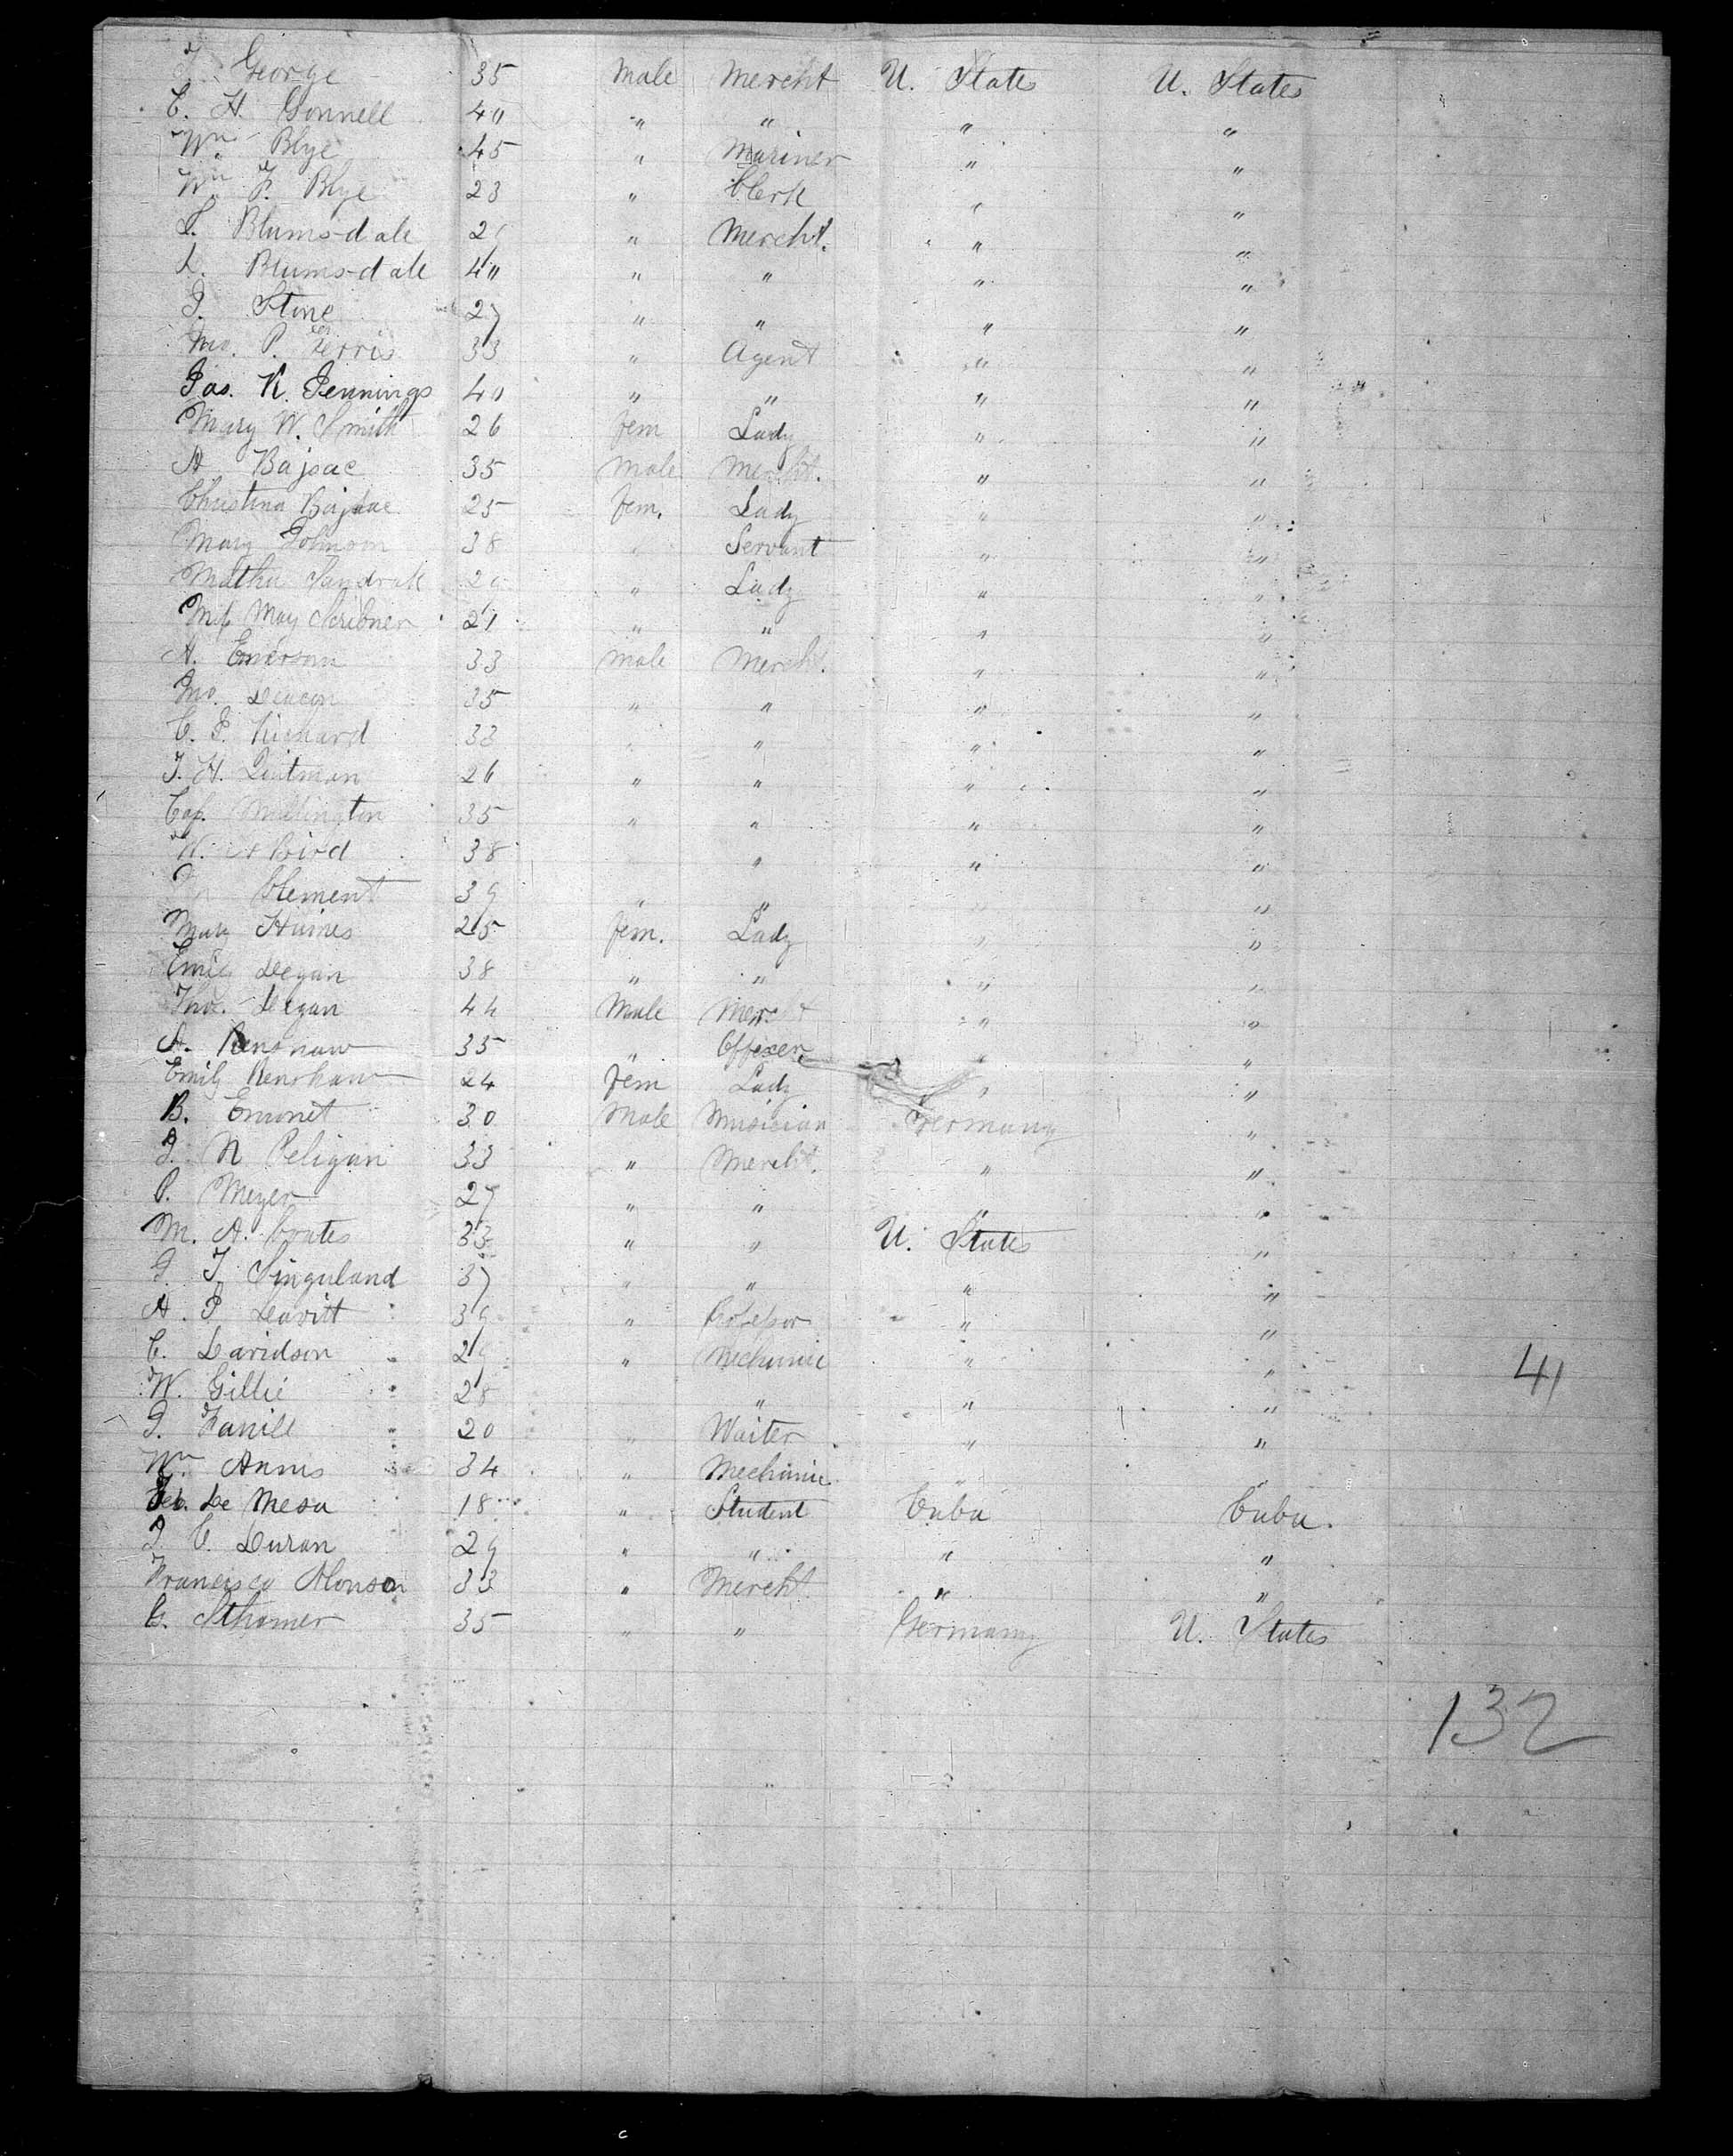 J. George 35 Male Mercht U. States U. States
C. H. Gonnell 40 " " " "
Wm Blye 45 " Mariner " "
Wm F. Blye 23 " Clerk " "
Blumsdale " Mercht. " "
Blumsdale 40 " " " "
J. Stone 27 " " " "
Jno. P. Ferris 33 " Agent " "
Jas. K. Jennings 40 " " " "
Mary W. Smith 26 Fem Lady " "
A Bajsac 35 Male Mercht. " "
Christina Bajsac 25 Fem. Lady " "
Mary Johnson 38 " Servant " "
" Lady " "
May Scribner 21 " " " "
A. Emerson 33 Male Mercht. " "
Jno. Deacon 35 " " " "
C. P. 33 " " " "
J. H. 26 " " " "
Cap. Millington 35 " " " "
W. A Bird 38 " " "
Clement 39 " " " "
Mary Haines 25 Fem. Lady " "
Emily Degan 38 " " " "
Degan 44 Male Mercht " "
A. Renshaw 35 " Officer " "
Emily Renshaw 24 Fem Lady " "
B. Emonet 30 Male Musician Germany "
J. N Peligan 33 " Mercht. " "
P. Meyer 27 " " " "
M. A. Coates 33 " " U. States "
G. T. Singuland 37 " " " "
A. P. Leavitt 39 " " "
C. Davidson 29 " Mechanic " "
W. Gillie 28 " " "
J. Farrill 20 " Waiter " "
Wm Annis 34 " Mechanic " "
De Mesa 18 " Student Cuba Cuba.
J. C. Duran 29 " " " "
Francisco Alonson 33 " Mercht. " "
G. Sthamer 35 " " Germany U. States
41
132